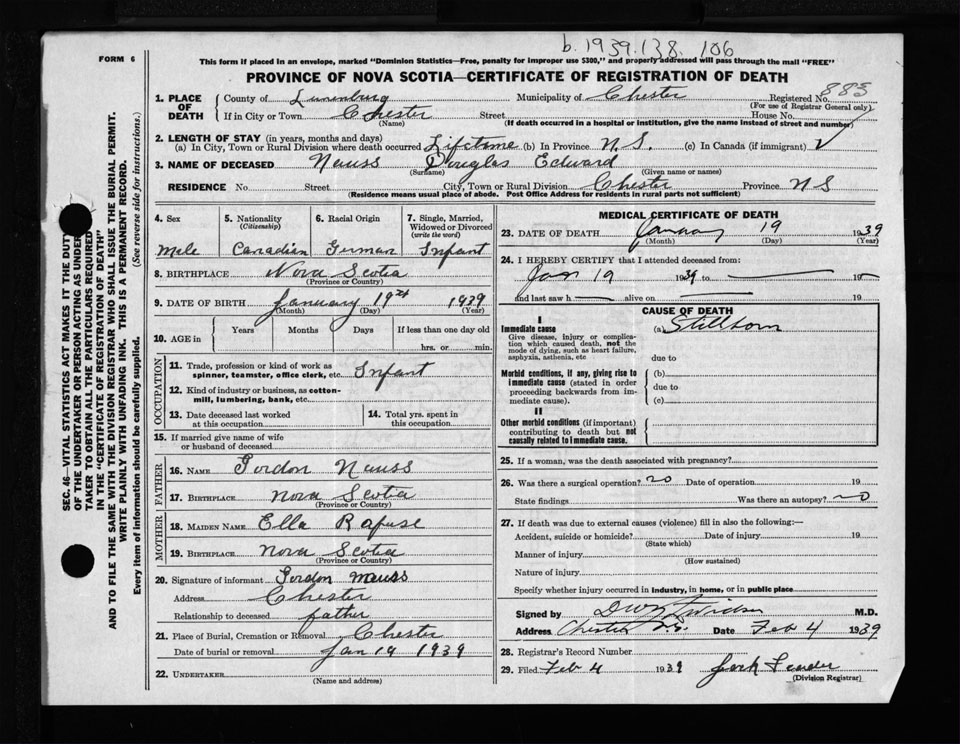 b. 1939.138. 106
FORM 6
This form if placed in an envelope, marked "Dominion Statistics—Free, penalty for improper use $300," and properly addressed will pass through the mail "FREE"
PROVINCE OF NOVA SCOTIA—CERTIFICATE OF REGISTRATION OF DEATH
SEC. 46—VITAL STATISTICS ACT MAKES IT THE DUTY
OF THE UNDERTAKER OR PERSON ACTING AS UNDER
TAKER TO OBTAIN ALL THE PARTICULARS REQUIRED
IN THE "CERTIFICATE OF REGISTRATION OF DEATH"
AND TO FILE THE SAME WITH THE DIVISION REGISTRAR WHO SHALL ISSUE THE BURIAL PERMIT.
WRITE PLAINLY WITH UNFADING INK. THIS IS A PERMANENT RECORD.
Every item of information should be carefully supplied. (See reverse side for instructions.)
1. PLACE OF DEATH County of Lunenburg Municipality of Chester Registered No. 883
(For use of Registrar General only)
If in City or Town Chester Street House No.
(Name) (If death occurred in a hospital or institution, give the name instead of street and number)
2. LENGTH OF STAY (in years, months and days)
(a) In City, Town or Rural Division where death occurred Lifetime (b) In Province N.S. (c) In Canada (if immigrant)
3. NAME OF DECEASED Nauss Douglas Edward
(Surname) (Given name or names)
RESIDENCE No. Street City, Town or Rural Division Chester Province NS
(Residence means usual place of abode. Post Office Address for residents in rural parts not sufficient)
4. Sex Male
5. Nationality (Citizenship) Canadian
6. Racial Origin German
7. Single, Married, Widowed or Divorced (write the word) Infant
8. BIRTHPLACE Nova Scotia
(Province or Country)
9. DATE OF BIRTH January 19th 1939
(Month) (Day) (Year)
10. AGE in Years Months Days If less than one day old
hrs. or min.
OCCUPATION
11. Trade, profession or kind of work as
spinner, teamster, office clerk, etc. Infant
12. Kind of industry or business, as cotton-
mill, lumbering, bank, etc.
13. Date deceased last worked
at this occupation
14. Total yrs. spent in
this occupation
15. If married give name of wife
or husband of deceased
FATHER
16. NAME Gordon Nauss
17. BIRTHPLACE Nova Scotia
(Province or Country)
MOTHER
18. MAIDEN NAME Ella Rafuse
19. BIRTHPLACE Nova Scotia
(Province or Country)
20. Signature of informant Gordon Nauss
Address Chester
Relationship to deceased father
21. Place of Burial, Cremation or Removal Chester
Date of burial or removal Jan 19 1939
22. UNDERTAKER
(Name and address)
MEDICAL CERTIFICATE OF DEATH
23. DATE OF DEATH January 19 1939
(Month) (Day) (Year)
24. I HEREBY CERTIFY that I attended deceased from:
Jan 19 1939 to 19
and last saw h alive on 19
CAUSE OF DEATH
I
Immediate cause (a) Stillborn
Give disease, injury or complica-
tion which caused death, not the
mode of dying, such as heart failure,
asphyxia, asthenia, etc
due to
Morbid conditions, if any, giving rise to
immediate cause (stated in order
proceeding backwards from im-
mediate cause).
(b)
due to
(c)
II
Other morbid conditions (if important)
contributing to death but not
causally related to immediate cause.
25. If a woman, was the death associated with pregnancy?
26. Was there a surgical operation? no Date of operation 19
State findings Was there an autopsy? no
27. If death was due to external causes (violence) fill in also the following:—
Accident, suicide or homicide? Date of injury 19
(State which)
Manner of injury
(How sustained)
Nature of injury
Specify whether injury occurred in industry, in home, or in public place
Signed by M.D.
Address Chester N.S. Date Feb 4 1939
28. Registrar's Record Number
29. Filed Feb 4 1939
(Division Registrar)